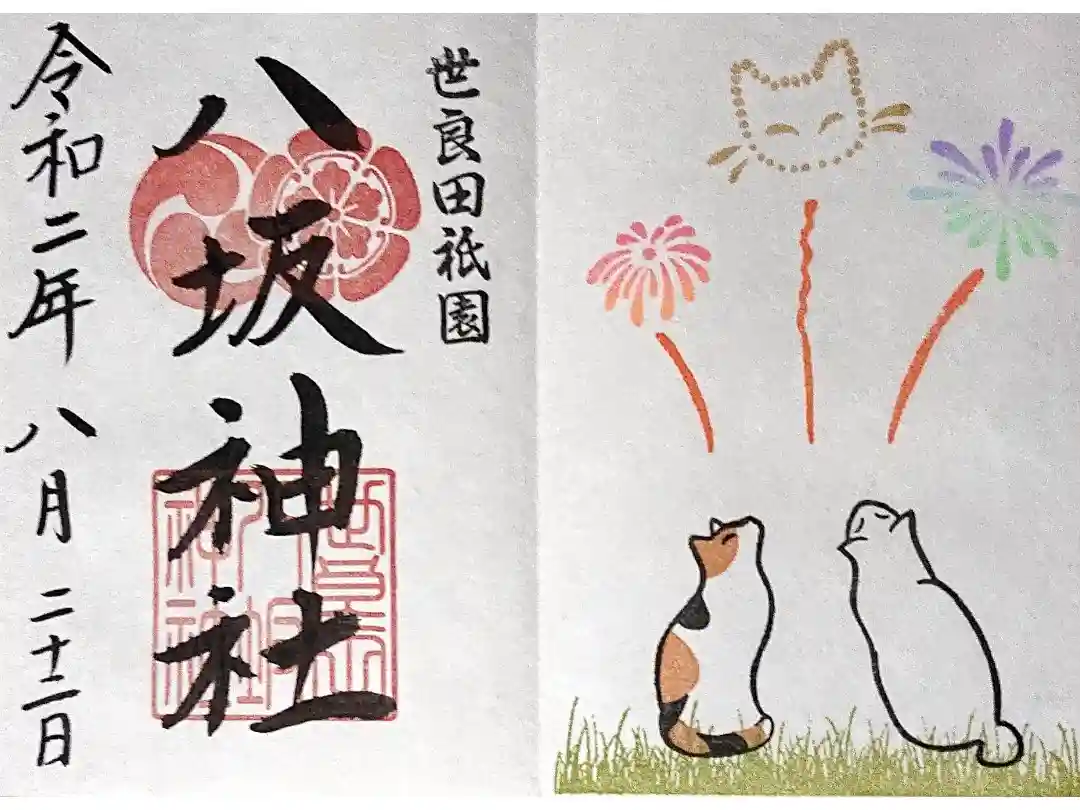 世良田祇園
八坂神社
令和二年 八月 二十二日